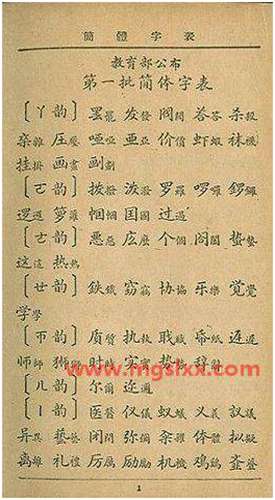 簡體字表
教育部公布
第一批简体字表
〔ㄚ韵〕 罢罷 发發 阀閥 荅答 杀殺
杂雜 压壓 哑啞 亚亞 价價 虾蝦 袜襪
挂掛 画畫 劃
〔ㄛ韵〕 拨撥 泼潑 罗羅 啰囉 鑼
逻邏 箩籮 帼幗 国國 过過
〔ㄜ韵〕 恶惡 庅麼 个個 阁閣 蛰蟄
这這 热熱
〔ㄝ韵〕 鉄鐵 窃竊 协協 乐樂 觉覺
学學
〔帀韵〕 质質 执執 职職 帋紙 迟遲
师師 狮獅 时時 实實 势勢 辞辭
www.mgslxx.com
〔ㄦ韵〕 尔爾 迩邇
〔丨韵〕 医醫 仪儀 蚁蟻 义義 議
异異 艺藝 闭閉 弥彌 籴糴 体體 拟擬
离離 礼禮 厉厲 励勵 机機 鸡鷄
1